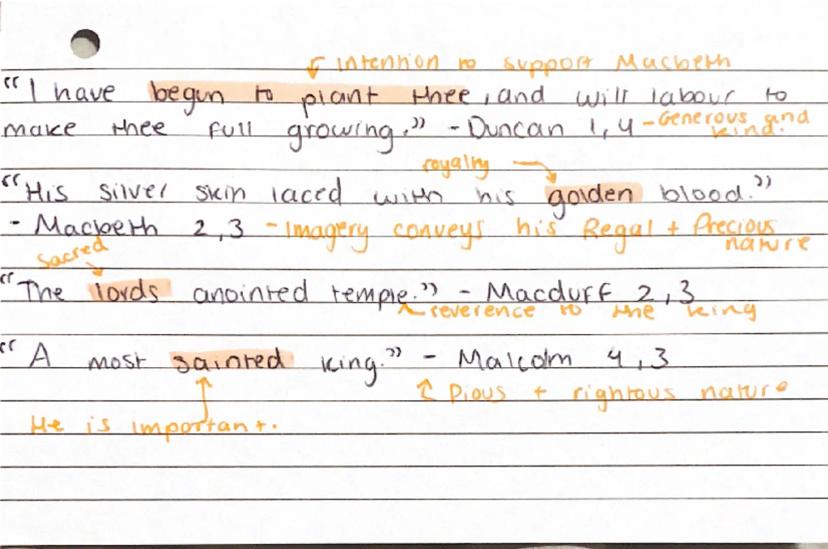 Intention to support Macbeth
"I have begun to plant thee, and will labour to
make thee full growing." - Duncan 1,4 - Generous and
kind.
royalty
"His silver skin laced with his golden blood."
- Macbeth 2,3 - Imagery conveys his Regal + Precious
nature
Sacred
"The lords anointed temple." - Macduff 2,3
reverence to the king
"A most sainted king." - Malcolm 4,3
Pious + rightous nature
He is important.